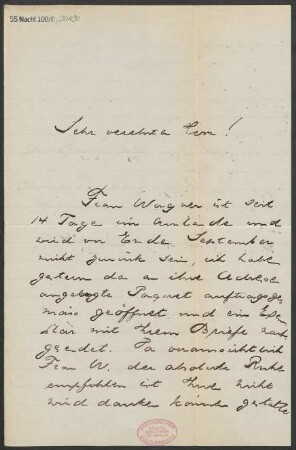 SS Nachl 100/B,
Sehr verehrter Herr!
Frau Wagner ist seit
14 Tage im Auslande und
wird vor Ende September
nicht zurück sein, ich habe
gestern das an ihre Adresse
Paquet auftragsge-
mäss geöffnet und ein Exem-
plar mit Ihrem Briefe nach
gesendet. Da voraussichtlich
Frau W. der absolute Ruhe
empfohlen ist Ihnen nicht
wird danken können